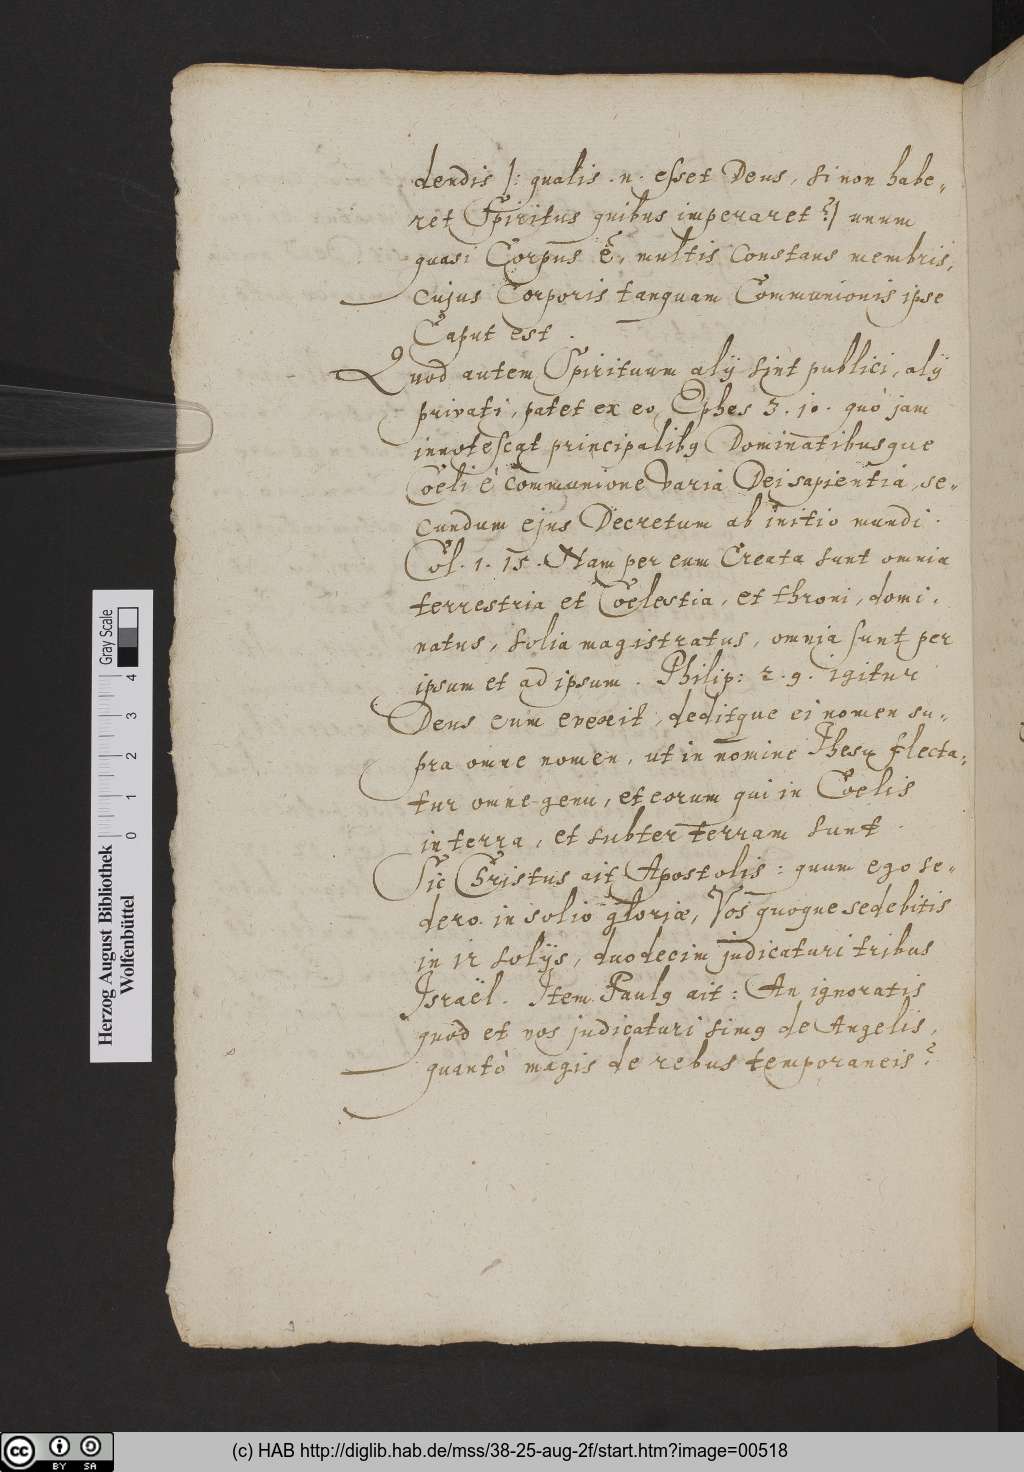 dendis |: qualis .n. esset Deus, si non habe„
ret Spiritus quibus imperaret ?| unum
quasi Corpus ẽ, multis constans membris,
cujus Corporis tanquam Communionis ipse
Caput est .
Quod autem Spirituum alÿ sint publici, alÿ
privati, patet ex eo, Ephes 3. 10. quò jam
innotescat principalibg Dominatibusque
Coeli è communione varia Dei sapientiâ, se„
cundum ejus Decretum ab initio mundi .
Col. 1. 15. Nam per eum Creata sunt omnia
terrestria et Coelestia, et throni, domi,
natus, solia magistratus, omnia sunt per
ipsum et ad ipsum . Philip: 2. 9. igitur
Deus eum evexit, deditque ei nomen su„
pra omne nomen, ut in nomine Jhesu flecta„
tur omne genu, et eorum qui in Coelis
in terra, et subter terram sunt .
Sic Christus ait Apostolis : quum ego se„
dero in solio gloriæ, Vos quoque sedebitis
in 12 solÿs, duodecim judicaturi tribus
Israël. Item Paulg ait : An ignoratis
quod et nos judicaturi simg de Angelis,
quantò magis de rebus temporaneis ?
Herzog August Bibliothek
Wolfenbüttel
0 1 2 3 4
Gray Scale
cc BY SA
(c) HAB http://diglib.hab.de/mss/38-25-aug-2f/start.htm?image=00518